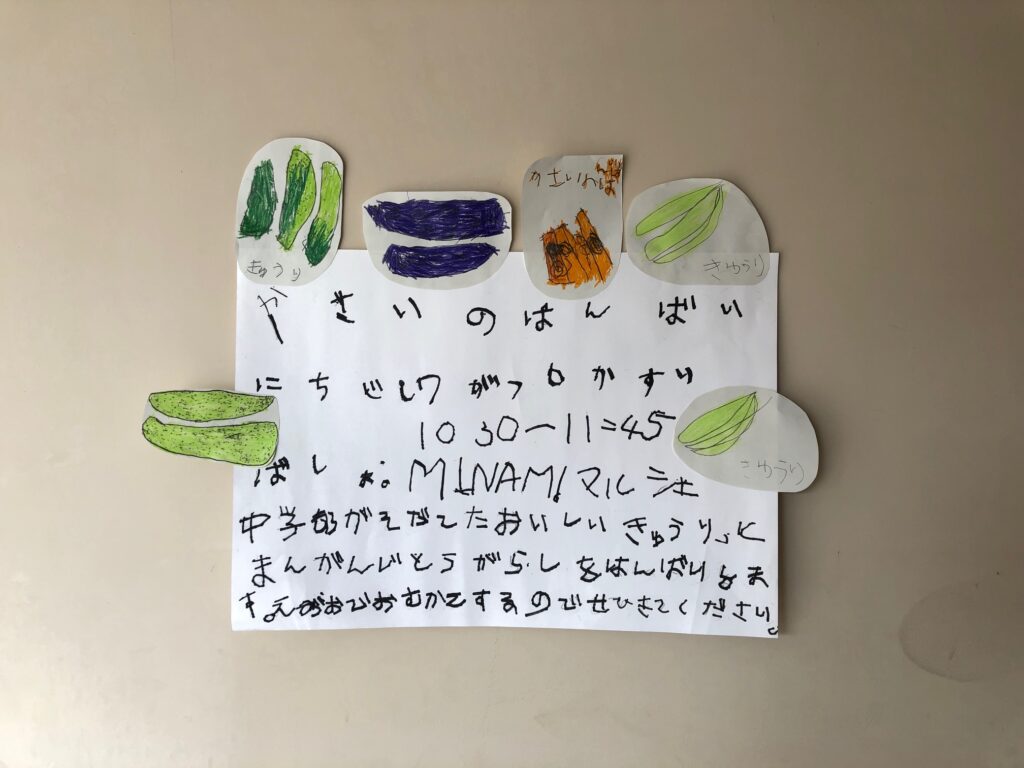 きゅうり
きゅうり
やさいのはんばい
にちじ 7がつ かすい
10 30ー11=45
きゅうり
ばしょ: MINAMIマルシェ
中学部がそだてたおいしいきゅうりと
まんがんじとうがらしをはんばいしま
す。えがおでおむかえするのでぜひきてください。